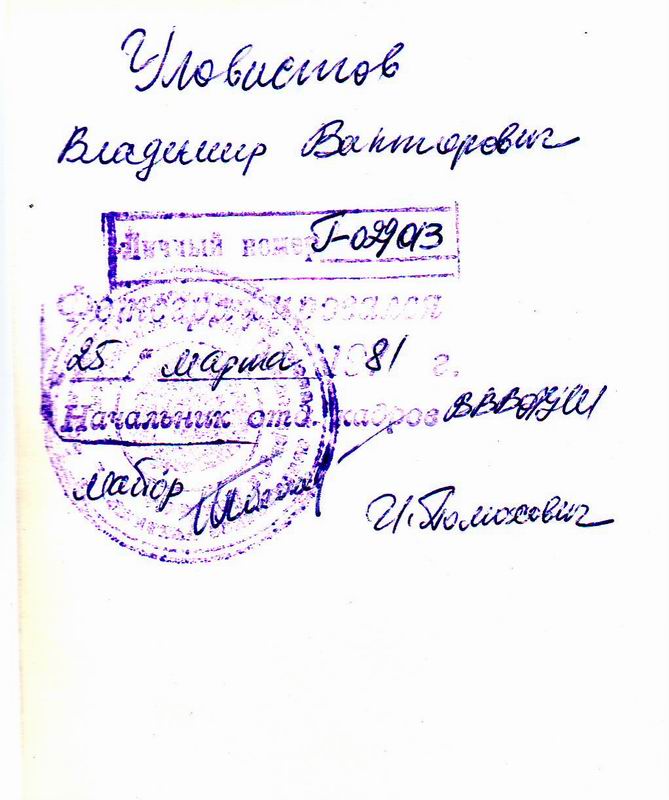 Уловистов
Владимир Викторович
Личный номер Г-029013
Фотографировался
25 марта 1981 г.
Начальник отд. кадров
майор
И. Томасевич